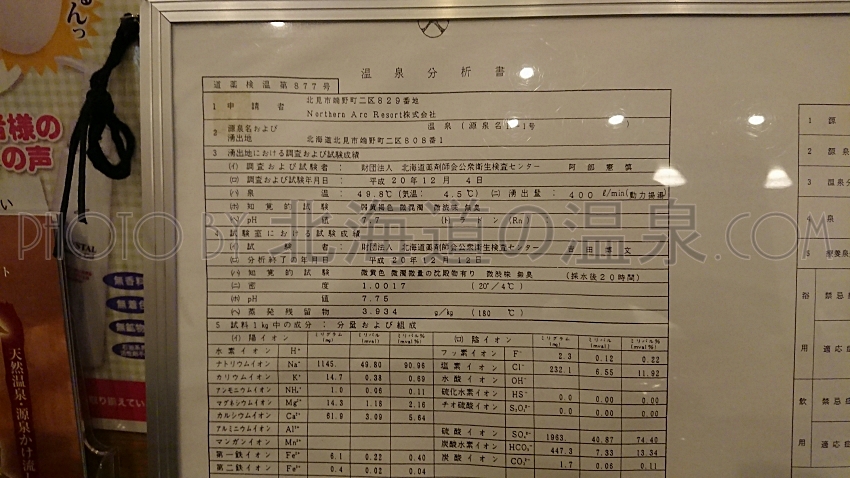 温泉分析書
道薬検温第877号
1 申請者 北見市端野町二区829番地
Northern Arc Resort株式会社
2 源泉名および 温泉(源泉名 1号)
湧出地 北海道北見市端野町二区808番1
3 湧出地における調査および試験成績
(イ) 調査および試験者 : 財団法人 北海道薬剤師会公衆衛生検査センター 阿部憲慎
(ロ) 調査および試験年月日 : 平成20年12月4日
(ハ) 泉温 49.8℃(気温: 4.5℃) (ニ) 湧出量: 400 ℓ/min(動力揚湯)
(ホ) 知覚的試験 弱黄褐色 微混濁 微渋味 無臭
(ヘ) pH値 7.7 (ト) ラドン(Rn)
4 試験室における試験成績
(イ) 試験者 : 財団法人 北海道薬剤師会公衆衛生検査センター 吉田博文
(ロ) 分析終了の年月日 平成20年12月12日
(ハ) 知覚的試験 微黄色 微濁微量の沈殿物有り 微渋味 無臭 (採水後20時間)
(ニ) 密度 1.0017 (20°/4℃)
(ホ) pH値 7.75
(ヘ) 蒸発残留物 3.934 g/kg (180℃)
5 試料1kg中の成分: 分量および組成
(イ) 陽イオン ミリグラム(mg) ミリバル(mval) ミリバル%(mval%)
水素イオン H⁺
ナトリウムイオン Na⁺ 1145. 49.80 90.96
カリウムイオン K⁺ 14.7 0.38 0.69
アンモニウムイオン NH₄⁺ 1.0 0.06 0.11
マグネシウムイオン Mg²⁺ 14.3 1.18 2.16
カルシウムイオン Ca²⁺ 61.9 3.09 5.64
アルミニウムイオン Al³⁺
マンガンイオン Mn²⁺
第一鉄イオン Fe²⁺ 6.1 0.22 0.40
第二鉄イオン Fe³⁺ 0.4 0.02 0.04
(ロ) 陰イオン ミリグラム(mg) ミリバル(mval) ミリバル%(mval%)
フッ素イオン F⁻ 2.3 0.12 0.22
塩素イオン Cl⁻ 232.1 6.55 11.92
水酸イオン OH⁻
硫化水素イオン HS⁻ 0.0 0.00 0.00
チオ硫酸イオン S₂O₃²⁻ 0.0 0.00 0.00
硫酸イオン SO₄²⁻ 1963. 40.87 74.40
炭酸水素イオン HCO₃⁻ 447.3 7.33 13.34
炭酸イオン CO₃²⁻ 1.7 0.06 0.11
1 源
2 源泉
4 泉
5 療養泉
浴用
禁忌症
適応症
飲用
禁忌症
適応症
者様の
の声
無香料
無着色
無鉱物
取り揃えてい
天然温泉・源泉かけ流し
PHOTO BY 北海道の温泉.COM